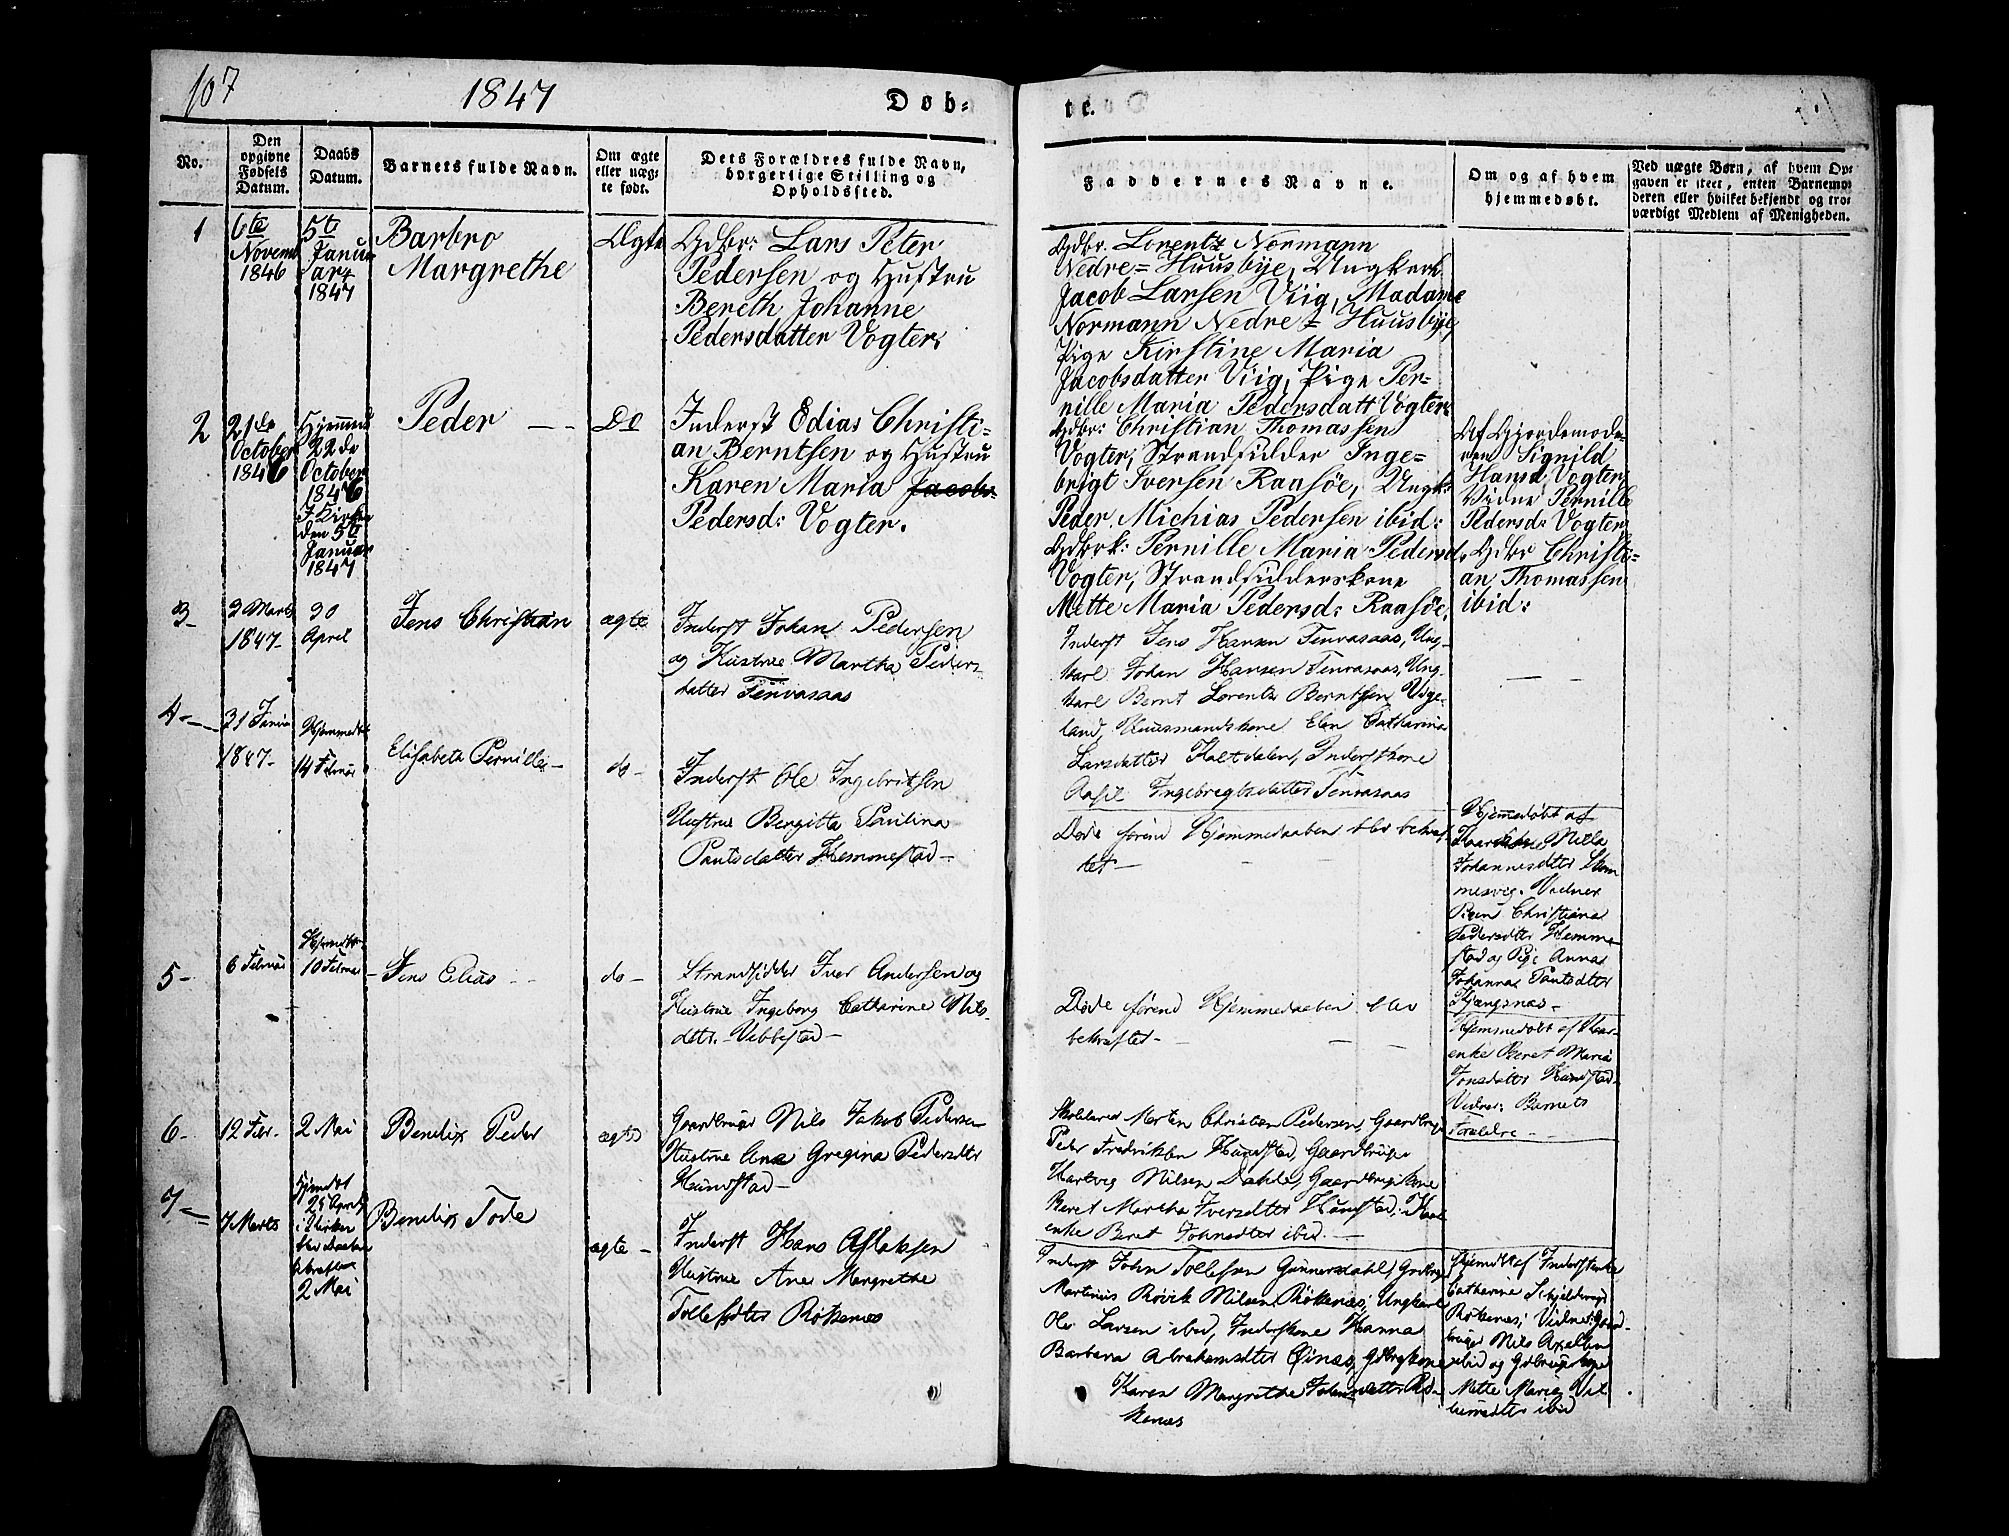 107
1847
Døb-
te.
No.
Den
opgivne
Fødsels
Datum.
Daabs
Datum.
Barnets fulde Navn.
Om ægte
eller uæg-
te født.
Dets Forældres fulde Navn,
borgerlige Stilling og
Opholdssted.
Faddernes Navne.
Om og af hvem
hjemmedøbt.
Ved uægte Børn, af hvem Op-
gaven er skeet, enten Barnemo-
deren eller hvilket bekjendt og tro-
værdigt Medlem af Menigheden.
1
6te
Novemb
1846
5te
Janu-
ar
1847
Barbro
Margrethe
Ægte
Gdbr: Lars Peter
Pedersen og Hustru
Bereth Johanne
Pedersdatter Vogter.
Gdbr. Lorentz Normann
Nedre-Huusbye, Ungkarl
Jacob Larsen Viig, Madame
Normann Nedre-Huusbye,
Pige Kirstine Maria
Jacobsdatter Viig, Pige Per-
nille Maria Pedersdatt Vogter.
2
21de
October
1846
Hjemme
22de
October
1846
I Kirke
den 5te
Januar
1847
Peder
Do
Inderst Edias Christi-
an Berntsen og Hustru
Karen Maria Jacobs
Pedersd: Vogter.
Gdbr: Christian Thomassen
Vogter, Strandsidder Inge-
brigt Iversen Raasøe, Ungk:
Peder Michias Pedersen ibid:
Gdbrk: Pernille Maria Pedersd.
Vogter, Strandsidderskone
Mette Maria Pedersd: Raasøe,
Af Gjordemode-
ren Signild
Hansd. Vogter,
Vidne Pernille
Pedersd: Vogter,
Gdbr Christi-
an Thomassen
ibid:
3
2 Marts
1847
30
April
Jens Christian
ægte
Inderst Johan Pedersen
og Hustrue Martha Peders-
datter Tenvasaas
Inderst Jens Hansen Tenvasaas, Ung-
karl Johan Hansen Tenvasaas, Ung-
karl Bernt Lorentz Berntsen Vige-
land, Huusmandskone Elen Catharina
Larsdatter Kaltdalen, Inderstkone
Aasil Ingebregtsdatter Tenvasaas
4
31 Janua
1847
Hjemmedbt
14 Februar
Elisabeta Pernille
do
Inderst Ole Ingebritsen
Hustrue Bergitta Paulina
Pantsdatter Hemmestad
Døde førend Hjemmedaaben blev bekræf-
tet
Hjemmedøbt af
Milla
Johannesdtter Hem
mesvig. Vidner
Christiana
Pedersdtter Hemme
stad og Pige Anna
Johanna Pantsdtter
Kjengsnæs
5
6 Februar
Hjemdbt
10 Februar
Jens Elias
do
Strandsidder Iver Andersen og
Hustrue Ingeborg Catharine Nils-
dttr. Vebbestad
Døde førend Hjemmedaaben blev
bekræftet
Hjemmedøbt af Kaar-
enke Beret Maria
Jonsdatter Hundstad
Vidner: Barnets
Forældre
6
12 Febr.
2 Mai
Bendix Peder
ægte
Gaardbruger Nils Jakob Pedersen
Hustrue Ane Gregina Pedersdtr
Hundstad
Skolelærer Morten Christian Pedersen, Gaardbruger
Peder Fredriksen Hundstad, Gaardbruger
Hartvig Nilsen Dahle, Gaardbrugerkone
Beret Martha Iversdtter Hundstad, Kaar
enke Beret Johnsdtter ibid
7
7 Marts
Hjemdbt
25 April
i Kirken
blev Daaben
bekræftet
2 Mai
Bendix Tode
ægte
Inderst Hans Aslaksen
Hustrue Ane Margrethe
Tollefsdtter Røkenes
Inderst John Tollefsen Gunnersdahl, Gdbrger
Martinus Rovik Nilsen Røkenæs, Ungkarl
Ole Larsen ibid, Inderskone Hanna
Barbara Abrahamsdtter Øinæs, Gdbrgkone
Karen Margrethe Johnsdatter Rø-
kenæs
Hjemdbt af Inderstenke
Catharine
Røkenæs, Vidner: Gaard-
bruger Nils Axelsen
ibid og Gdbrugerkone
Mette Maria
ibid